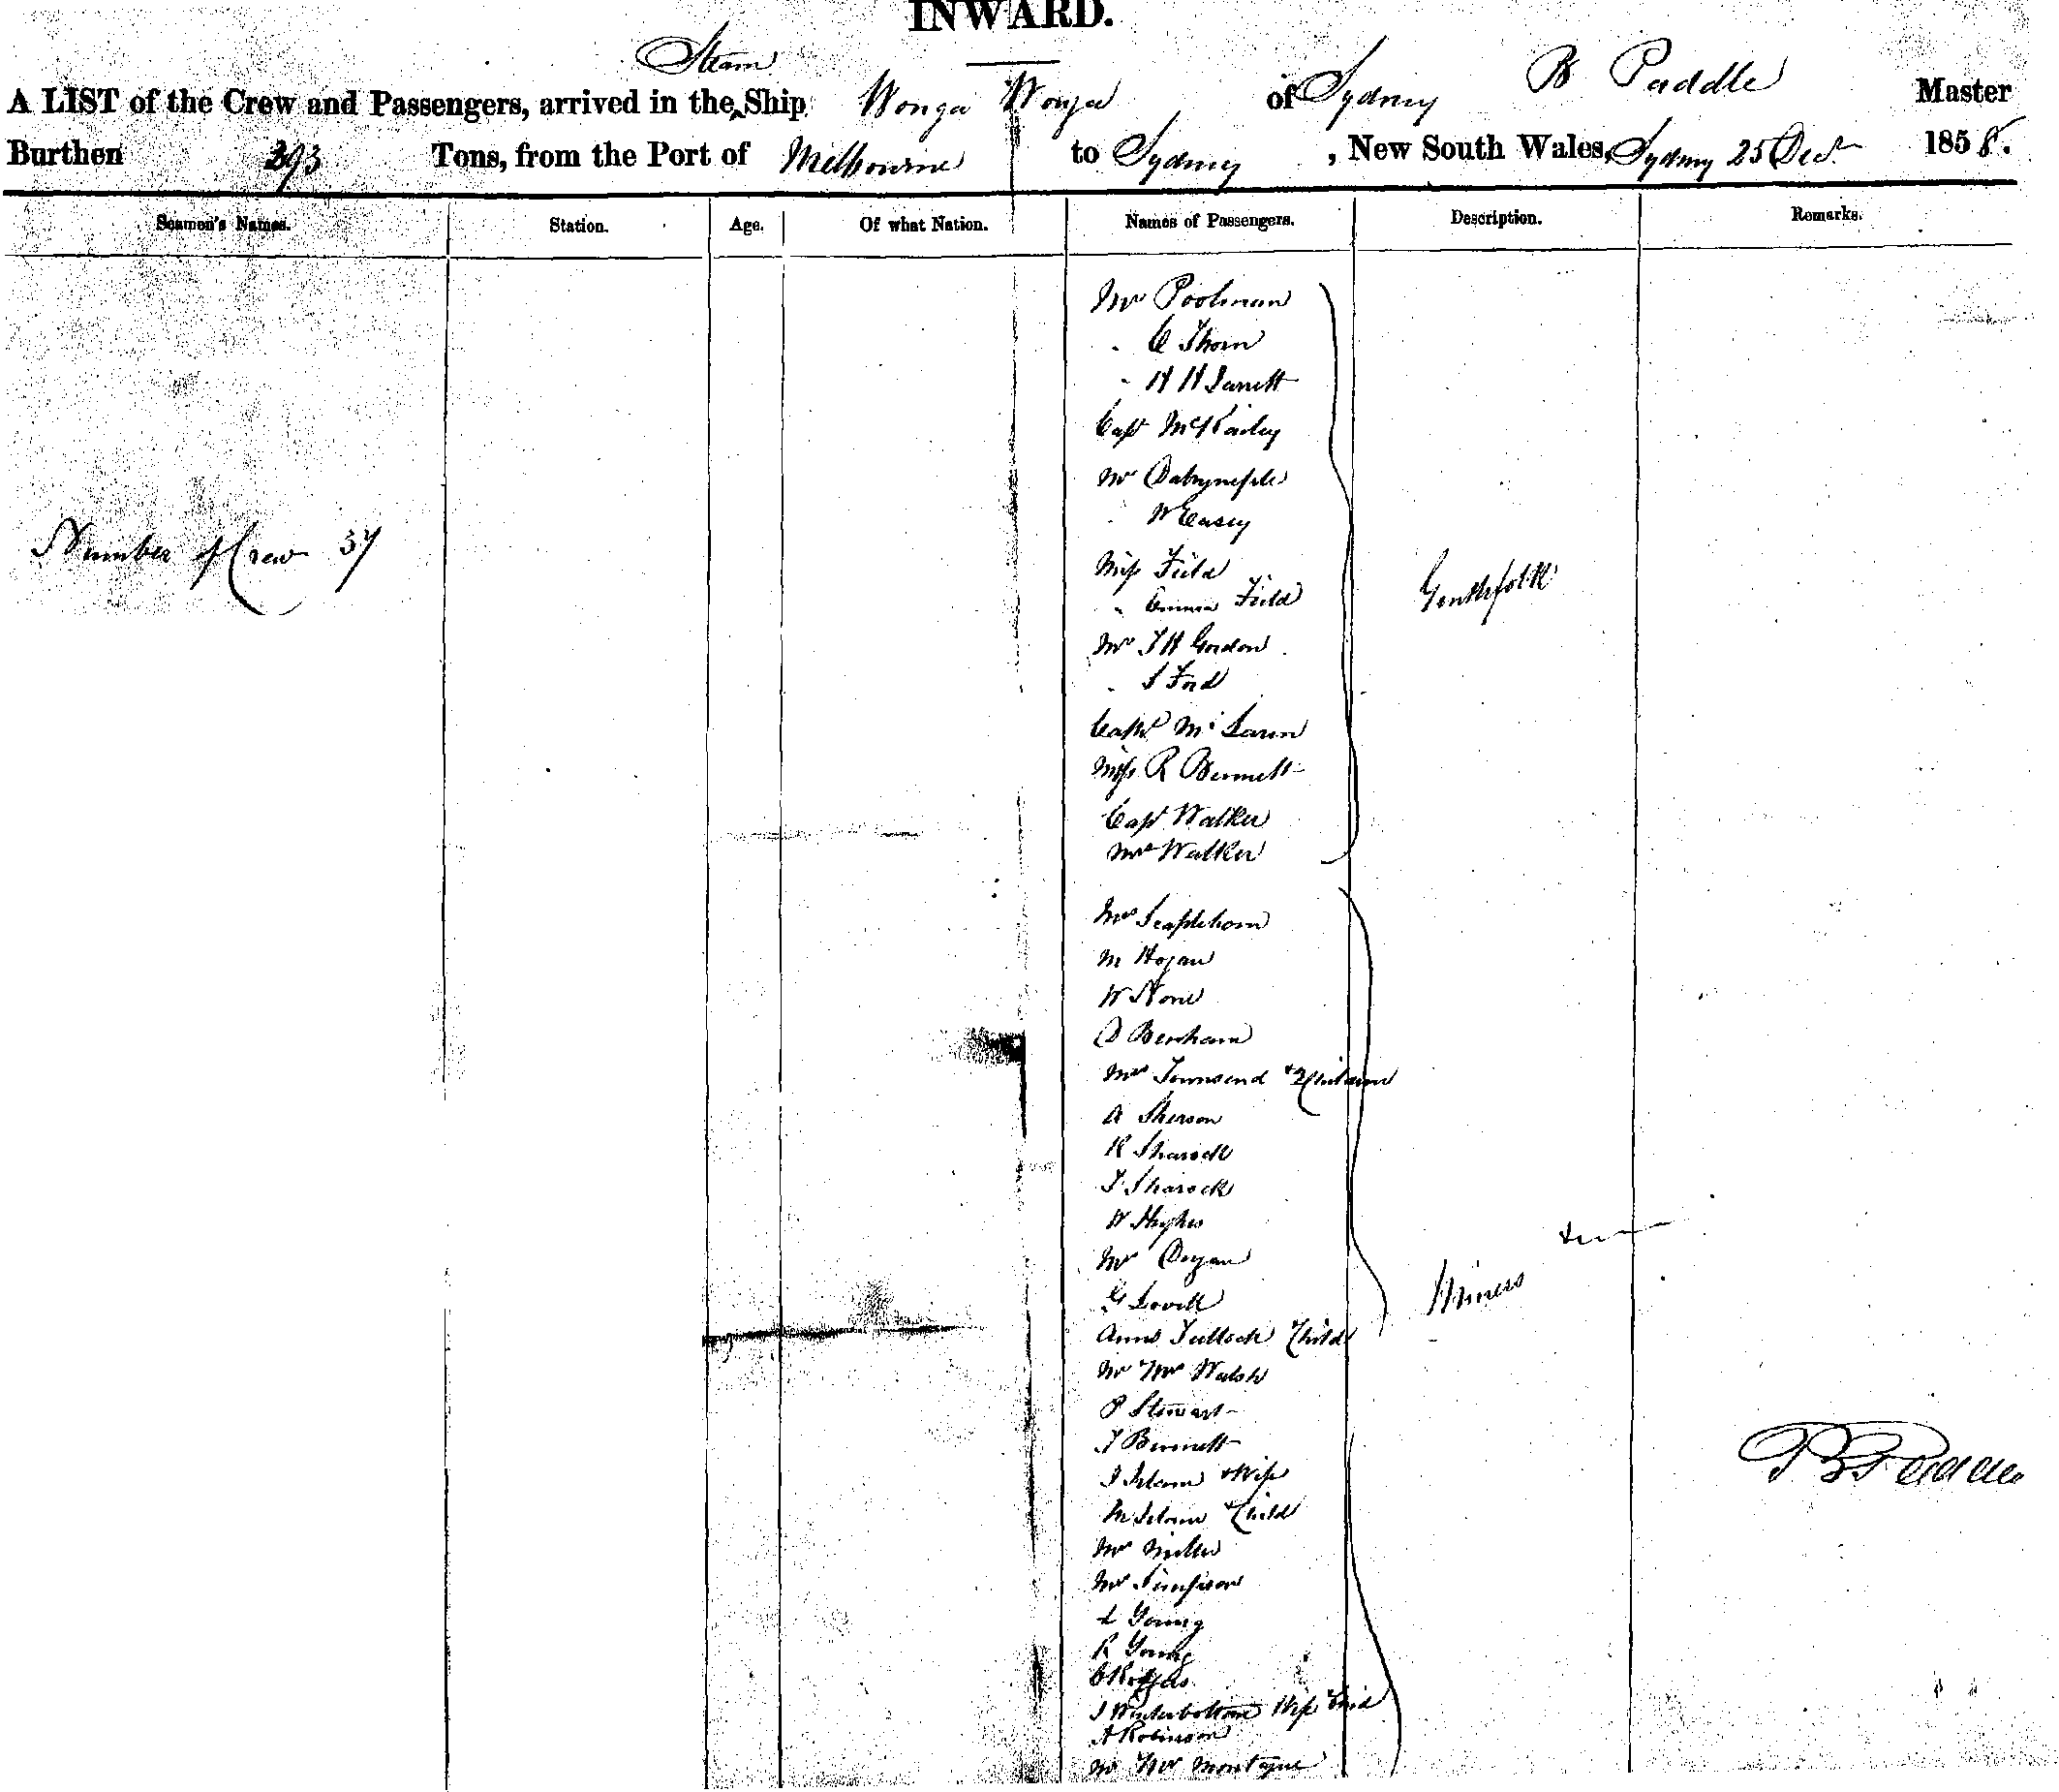 INWARD.
A LIST of the Crew and Passengers, arrived in the Steam Ship Wonga Wonga of Sydney B Paddle Master
Burthen 393 Tons, from the Port of Melbourne to Sydney, New South Wales, Sydney 25 Decr 1858.
Seamen's Names. Station. Age. Of what Nation. Names of Passengers. Description. Remarks.
Mr Poolman
" C Thorn
" H H
Capt
Mr Dalrymple
" W Casey
Number of Crew 57
Miss Field
" Emma Field
Gentlefolk
Mr T H Gordon
" S Ford
Capt McLaren
Miss R Bennett
Capt Walker
Mrs Walker
Mrs
M Hogan
W Stone
D Benham
Mrs Townsend & 2 Children
A
R Sharock
T Sharock
W Hughes
Mr
G Lovell
Miners &c
Anne Tullock & Child
Mr & Mrs Walsh
P Stewart
T Bennett
& Wife
& Child
Mr Miller
Mr Simpson
L Young
R Young
C Rogers
J Winterbottom Wife & Child
A Robinson
Mr & Mrs Montague